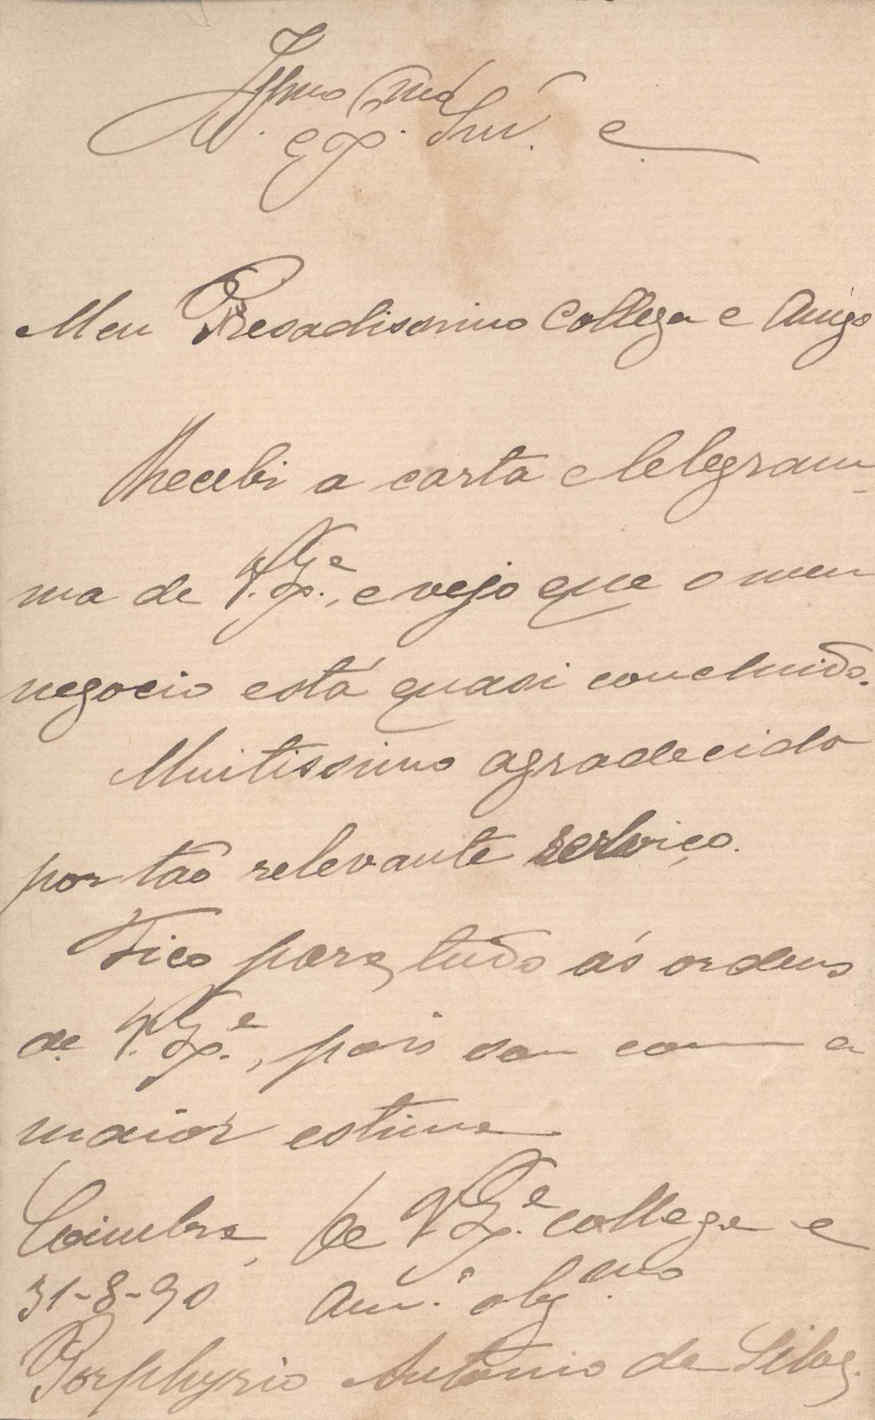 Illmo
Ex.mo Snr. e
Meu Presadissimo Collega e Amigo
Recebi a carta e telegram-
ma de V. Ex.e, e vejo que o meu
negocio está quasi concluido.
Muitissimo agradecido
por tão relevante serviço.
Fico para tudo ás ordens
de V. Ex.e, pois sou com a
maior estima
Coimbra, De V. Ex.e collega e
31-8-90 am.o obg.mo
Porphyrio Antonio da Silva.